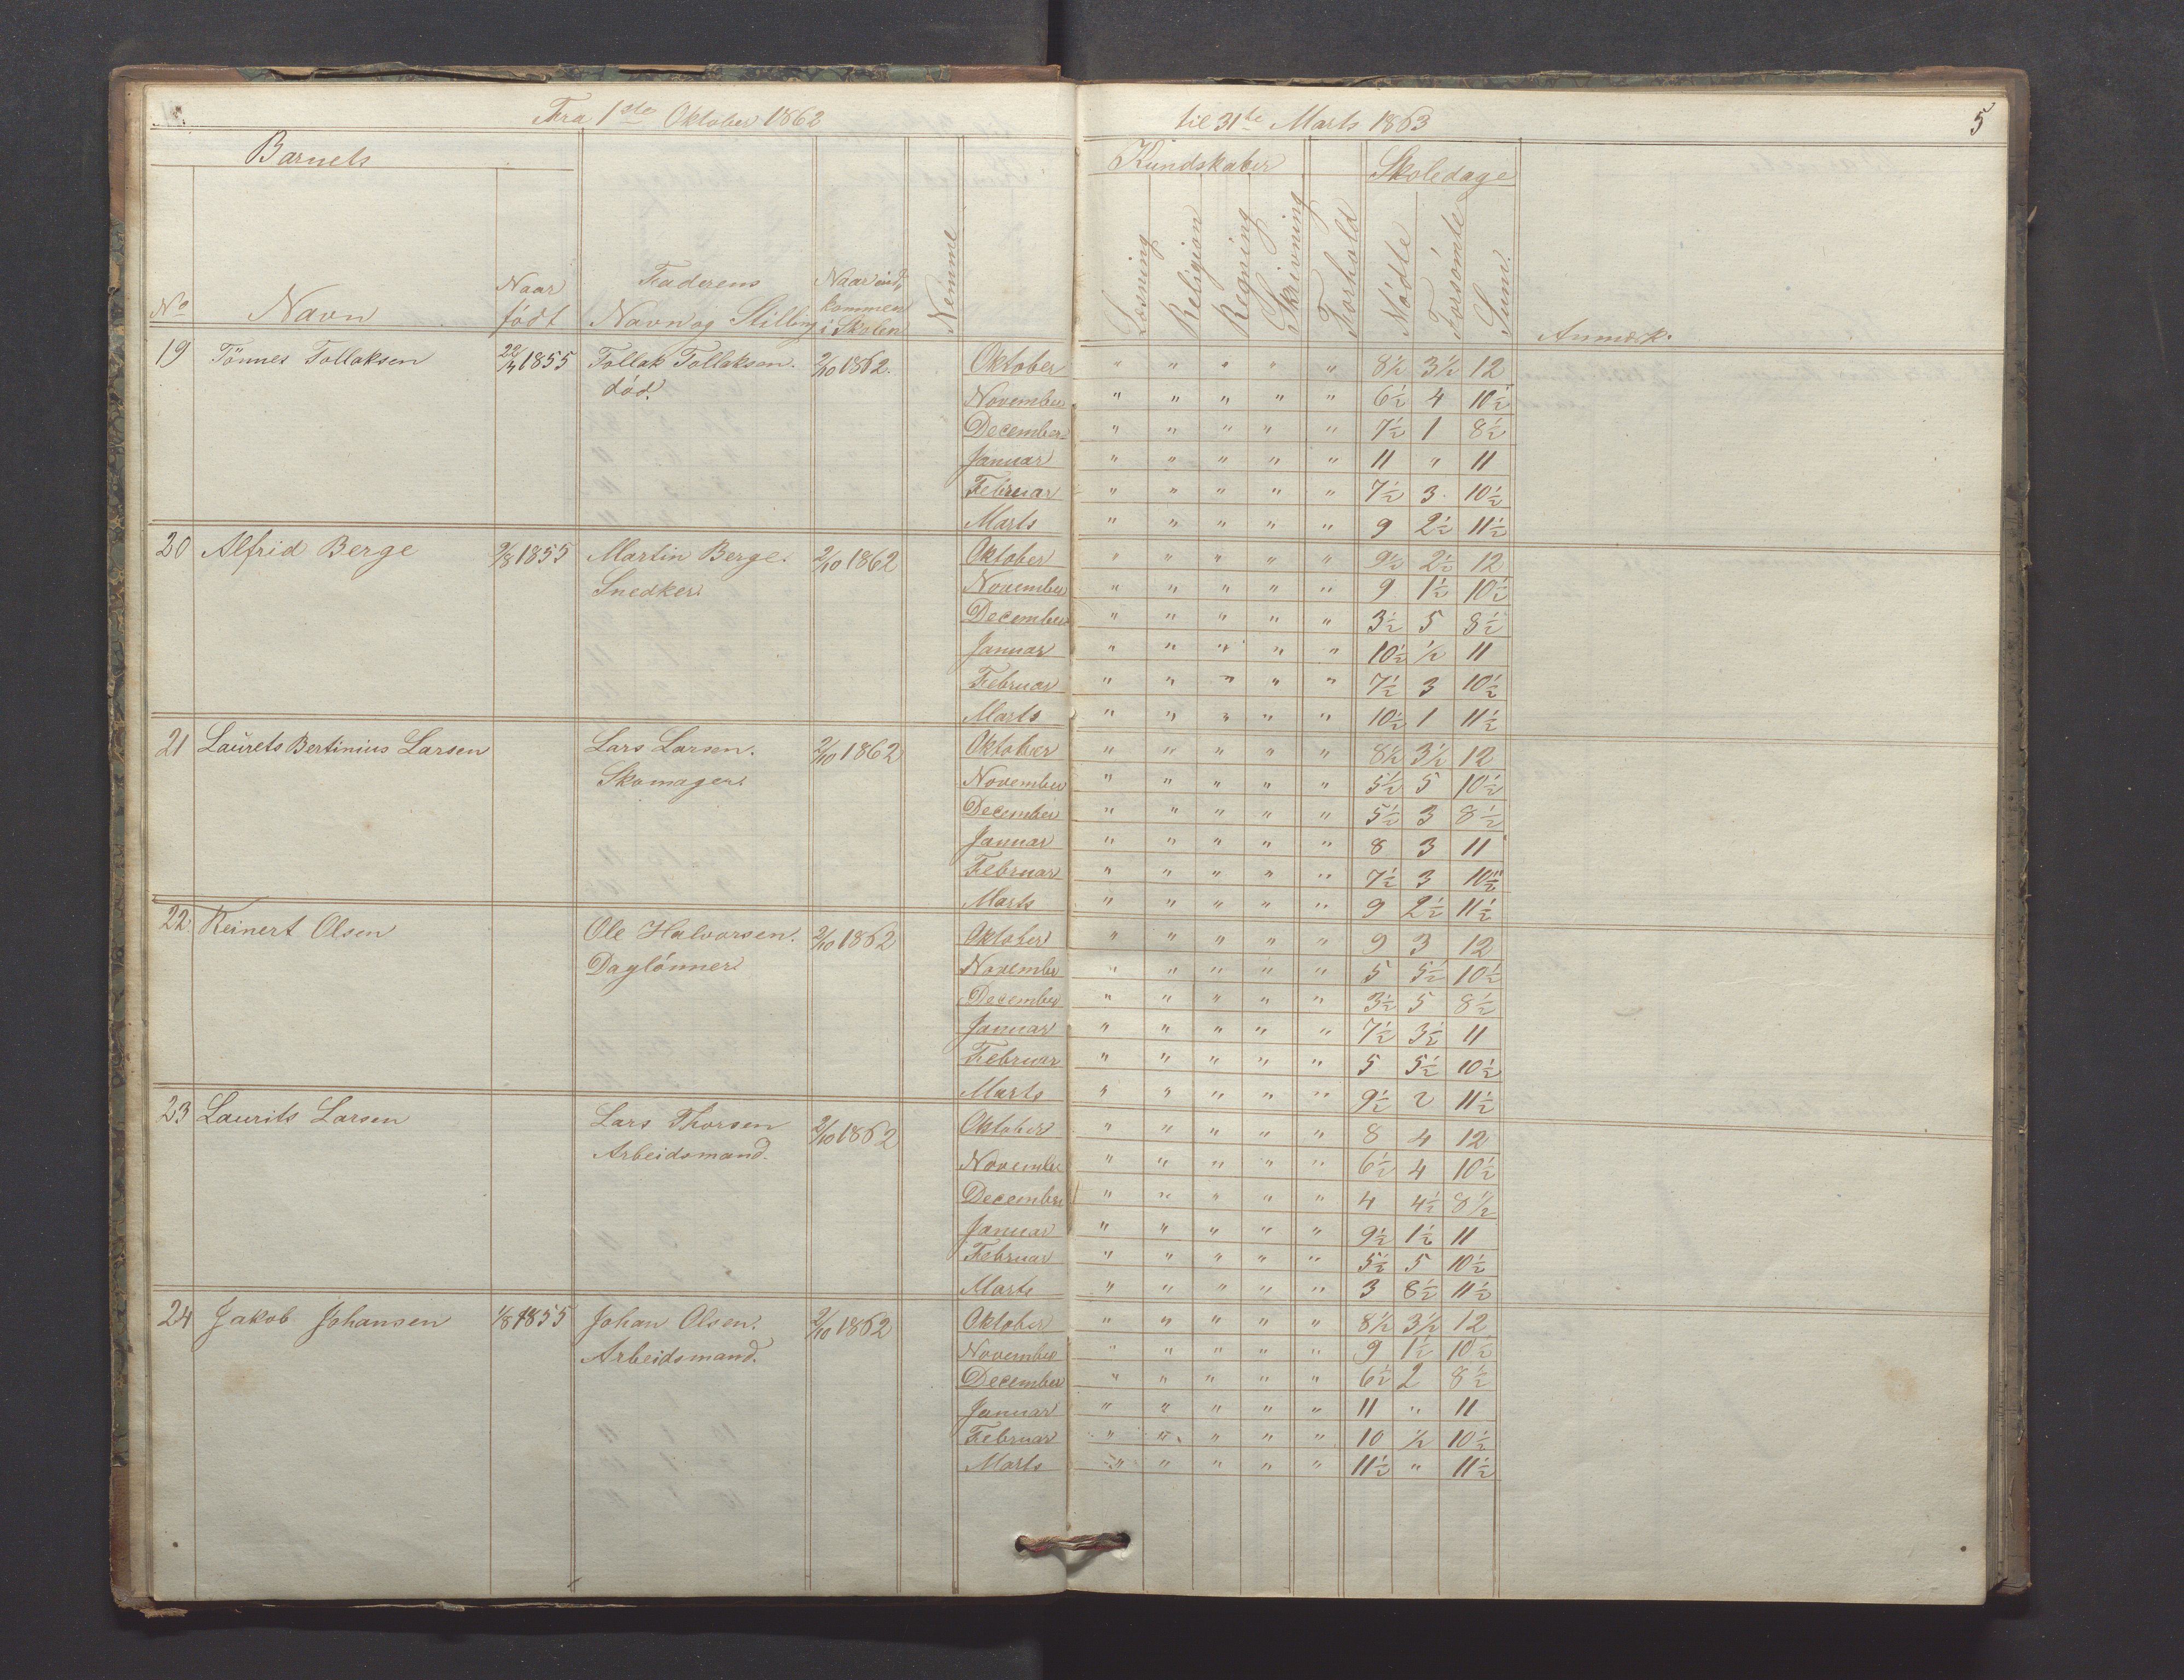 Fra 1ste Oktober 1862 til 31te Marts 1863 5
Barnets Kundskaber Skoledage
No Navn Naar født Faderens Navn og Stilling Naar ind kommen i Skolen Nemme Læsning Religion Regning Skrivning Forhold Mödte Forsömte Sum. Anmærk.
19 Tönnes Tollaksen 1855 Tollak Tollaksen. 2/10 1862. Oktober " " " " " 8½ 3½ 12
död. November " " " " " 6½ 4 10½
December " " " " " 7½ 1 8½
Januar " " " " " 11 " 11
Februar " " " " " 7½ 3 10½
Marts " " " " " 9 2½ 11½
20 Alfrid Berge 9/8 1855 Martin Berge. 2/10 1862 Oktober " " " " " 9½ 2½ 12
Snedker. November " " " " " 9 1½ 10½
December " " " " " 3½ 5 8½
Januar " " " " " 10½ ½ 11
Februar " " " " " 7½ 3 10½
Marts " " " " " 10½ 1 11½
21 Laurets Bertinius Larsen Lars Larsen. 2/10 1862 Oktober " " " " " 8½ 3½ 12
Skomager. November " " " " " 5½ 5 10½
December " " " " " 5½ 3 8½
Januar " " " " " 8 3 11
Februar " " " " " 7½ 3 10½
Marts " " " " " 9 2½ 11½
22. Reinert Olsen Ole Halvorsen. 2/10 1862 Oktober " " " " " 9 3 12
Daglönner. November " " " " " 5 5½ 10½
December " " " " " 3½ 5 8½
Januar " " " " " 7½ 3½ 11
Februar " " " " " 5 5½ 10½
Marts " " " " " 9½ 2 11½
23 Laurits Larsen Lars Thorsen 2/10 1862 Oktober " " " " " 8 4 12
Arbeidsmand. November " " " " " 6½ 4 10½
December " " " " " 4 4½ 8½
Januar " " " " " 9½ 1½ 11
Februar " " " " " 5½ 5 10½
Marts " " " " " 3 8½ 11½
24 Jakob Johansen 1/8 1855 Johan Olsen. 2/10 1862 Oktober " " " " " 8½ 3½ 12
Arbeidsmand. November " " " " " 9 1½ 10½
December " " " " " 6½ 2 8½
Januar " " " " " 11 " 11
Februar " " " " " 10 ½ 10½
Marts " " " " " 11½ " 11½